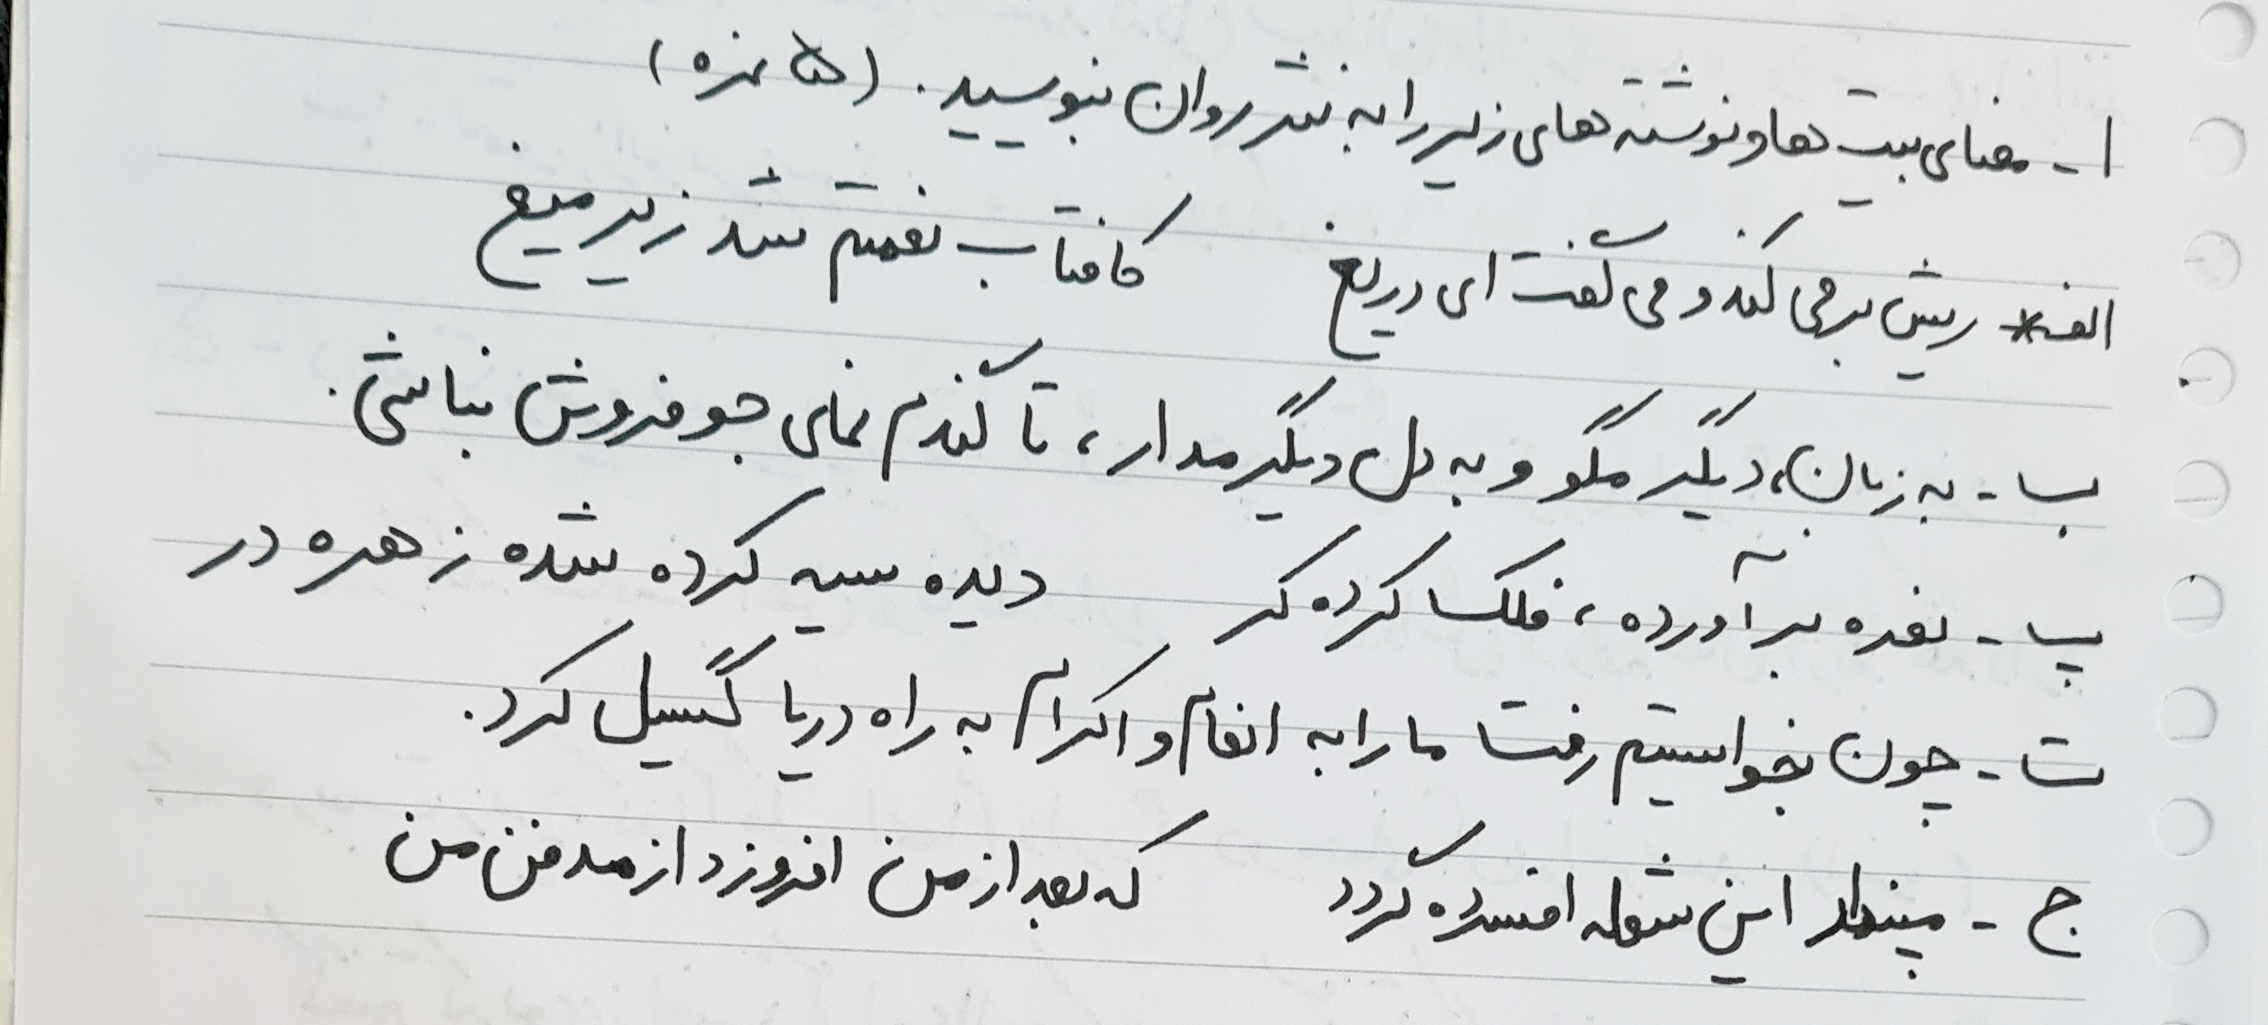 ۱- معنای بیت ها و نوشته های زیر را به نثر روان بنویسید. (۵ نمره)
الف* ریش بر می کند و می گفت ای دریغ کافتاب نعمتم شد زیر میغ
ب- به زبان، دیگر مگو و به دل دیگر مدار، تا گندم نمای جو فروش نباشی.
پ- نعره برآورده، فلک کرده کر دیده سیه کرده شده زهره در
ت- چون بخواستیم رفت ما را به انعام و اکرام به راه دریا گسیل کرد.
ج- مپندار این شعله افسرده گردد که بعد از من افروزد از مدفن من